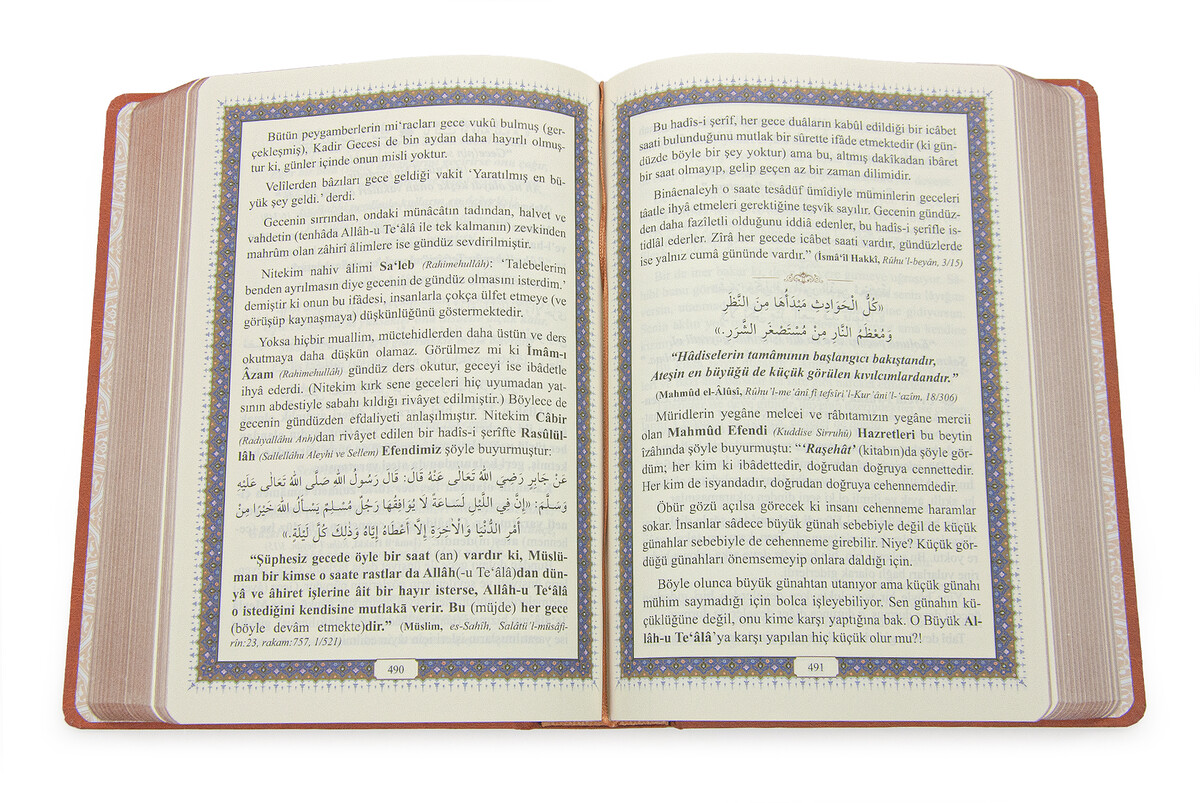 Bütün peygamberlerin mi‘racları gece vukû bulmuş (ger-
çekleşmiş), Kadir Gecesi de bin aydan daha hayırlı olmuş-
tur ki, günler içinde onun misli yoktur.
Velîlerden bâzıları gece geldiği vakit ‘Yaratılmış en bü-
yük şey geldi.’ derdi.
Gecenin sırrından, ondaki münâcâtın tadından, halvet ve
vahdetin (tenhâda Allâh-u Te‘âlâ ile tek kalmanın) zevkinden
mahrûm olan zâhirî âlimlere ise gündüz sevdirilmiştir.
Nitekim nahiv âlimi Sa‘leb (Rahimehullâh): ‘Talebelerim
benden ayrılmasın diye gecenin de gündüz olmasını isterdim.’
demiştir ki onun bu ifâdesi, insanlarla çokça ülfet etmeye (ve
görüşüp kaynaşmaya) düşkünlüğünü göstermektedir.
Yoksa hiçbir muallim, müctehidlerden daha üstün ve ders
okutmaya daha düşkün olamaz. Görülmez mi ki İmâm-ı
Âzam (Rahimehullâh) gündüz ders okutur, geceyi ise ibâdetle
ihyâ ederdi. (Nitekim kırk sene geceleri hiç uyumadan yat-
sının abdestiyle sabahı kıldığı rivâyet edilmiştir.) Böylece de
gecenin gündüzden efdaliyeti anlaşılmıştır. Nitekim Câbir
(Radıyallâhu Anh)dan rivâyet edilen bir hadîs-i şerîfte Rasûlül-
lâh (Sallellâhu Aleyhi ve Sellem) Efendimiz şöyle buyurmuştur:
عَنْ جَابِرٍ رَضِيَ اللهُ تَعَالَى عَنْهُ قَالَ: قَالَ رَسُولُ اللهِ صَلَّى اللهُ تَعَالَى عَلَيْهِ
وَسَلَّمَ: «إِنَّ فِي اللَّيْلِ لَسَاعَةً لَا يُوَافِقُهَا رَجُلٌ مُسْلِمٌ يَسْأَلُ اللهَ خَيْرًا مِنْ
أَمْرِ الدُّنْيَا وَالْآخِرَةِ إِلَّا أَعْطَاهُ إِيَّاهُ وَذَلِكَ كُلَّ لَيْلَةٍ.»
“Şüphesiz gecede öyle bir saat (an) vardır ki, Müslü-
man bir kimse o saate rastlar da Allâh(-u Te‘âlâ)dan dün-
yâ ve âhiret işlerine âit bir hayır isterse, Allâh-u Te‘âlâ
o istediğini kendisine mutlakâ verir. Bu (müjde) her gece
(böyle devâm etmekte)dir.” (Müslim, es-Sahîh, Salâtü’l-müsâfi-
rîn:23, rakam:757, 1/521)
490
Bu hadîs-i şerîf, her gece duâların kabûl edildiği bir icâbet
saati bulunduğunu mutlak bir sûrette ifâde etmektedir (ki gün-
düzde böyle bir şey yoktur) ama bu, altmış dakîkadan ibâret
bir saat olmayıp, gelip geçen az bir zaman dilimidir.
Binâenaleyh o saate tesâdüf ümîdiyle müminlerin geceleri
tâatle ihyâ etmeleri gerektiğine teşvîk sayılır. Gecenin gündüz-
den daha fazîletli olduğunu iddiâ edenler, bu hadîs-i şerîfle is-
tidlâl ederler. Zîrâ her gecede icâbet saati vardır, gündüzlerde
ise yalnız cumâ gününde vardır.” (İsmâ‘îl Hakkî, Rûhu’l-beyân, 3/15)
«كُلُّ الْحَوَادِثِ مَبْدَأُهَا مِنَ النَّظَرِ
وَمُعْظَمُ النَّارِ مِنْ مُسْتَصْغَرِ الشَّرَرِ.»
“Hâdiselerin tamâmının başlangıcı bakıştandır,
Ateşin en büyüğü de küçük görülen kıvılcımlardandır.”
(Mahmûd el-Âlûsî, Rûhu’l-me‘ânî fî tefsîri’l-Kur’âni’l-‘azîm, 18/306)
Müridlerin yegâne melcei ve râbıtamızın yegâne mercii
olan Mahmûd Efendi (Kuddise Sirruhû) Hazretleri bu beytin
îzâhında şöyle buyurmuştu: “‘Raşehât’ (kitabın)da şöyle gör-
düm; her kim ki ibâdettedir, doğrudan doğruya cennettedir.
Her kim de isyandadır, doğrudan doğruya cehennemdedir.
Öbür gözü açılsa görecek ki insanı cehenneme haramlar
sokar. İnsanlar sâdece büyük günah sebebiyle değil de küçük
günahlar sebebiyle de cehenneme girebilir. Niye? Küçük gör-
düğü günahları önemsemeyip onlara daldığı için.
Böyle olunca büyük günahtan utanıyor ama küçük günahı
mühim saymadığı için bolca işleyebiliyor. Sen günahın kü-
çüklüğüne değil, onu kime karşı yaptığına bak. O Büyük Al-
lâh-u Te‘âlâ’ya karşı yapılan hiç küçük olur mu?!
491